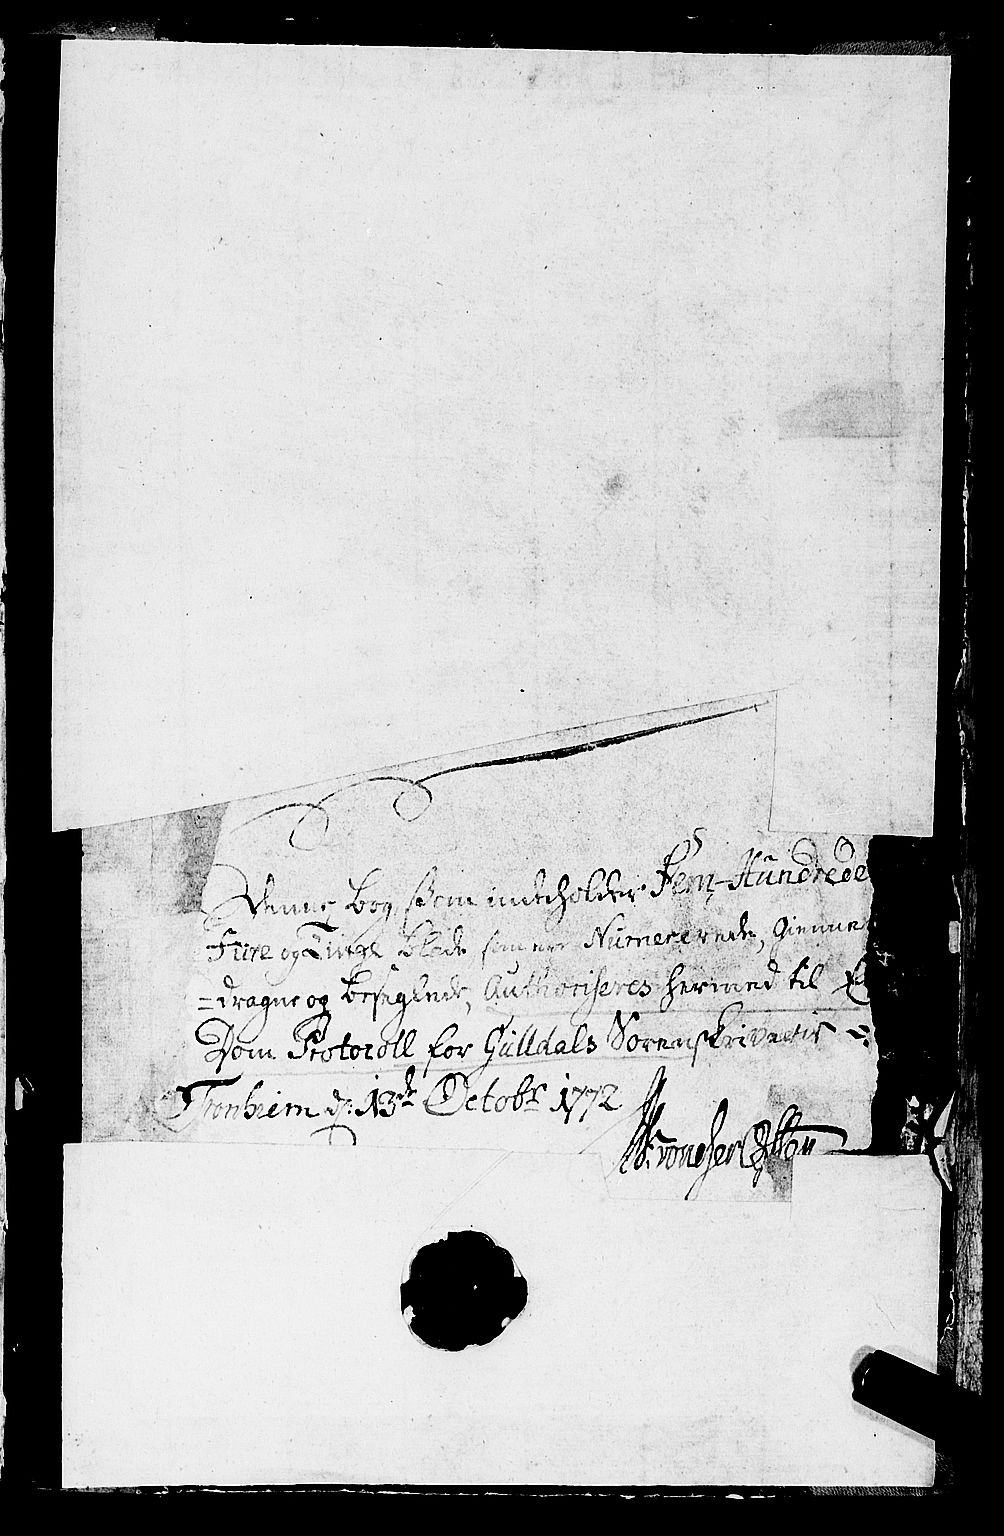 Denne bog, som indeholder Fem-Hundrede
Fiire og Tiuge blade, som ere Numererede, Giennem
=dragne og Besegلede, Authoriseres hermed til
Dom Protocoll for Gulldals Sorenskriverie
Tronhiem d: 13de Octobr 1772